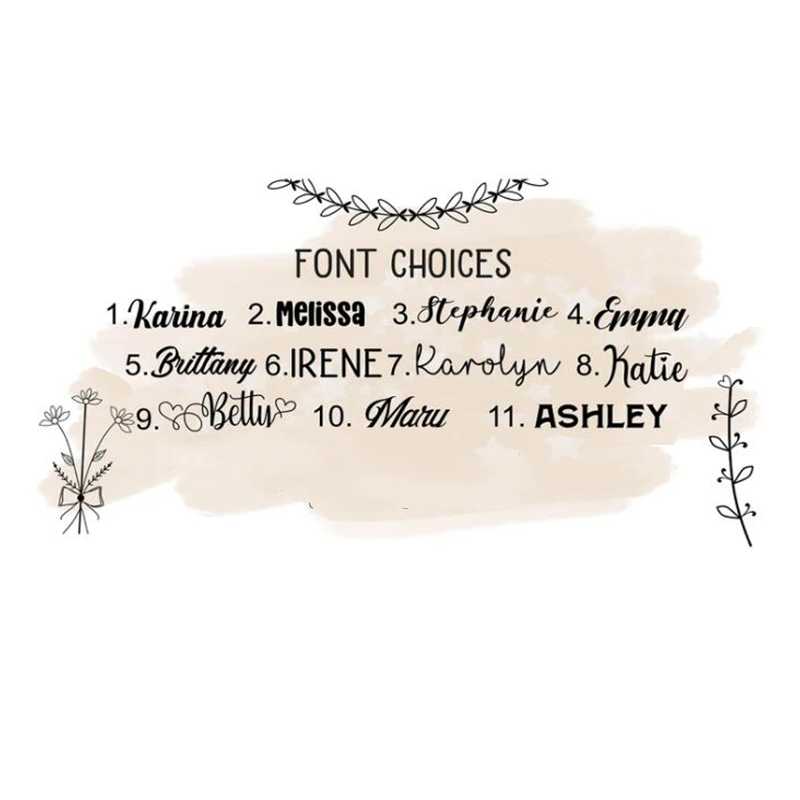 FONT CHOICES
1. Karina 2. Melissa 3. Stephanie 4. Emma
5. Brittany 6. IRENE 7. Karolyn 8. Katie
9. Betty 10. Mary 11. ASHLEY